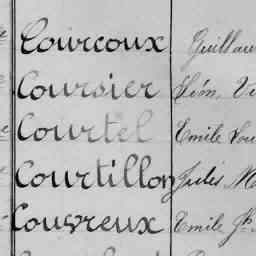 Courcoux Guillau
Coursier Léon, Vi
Courtel Emile Lou
Courtillon Jules M
Couvreux Emile Jh